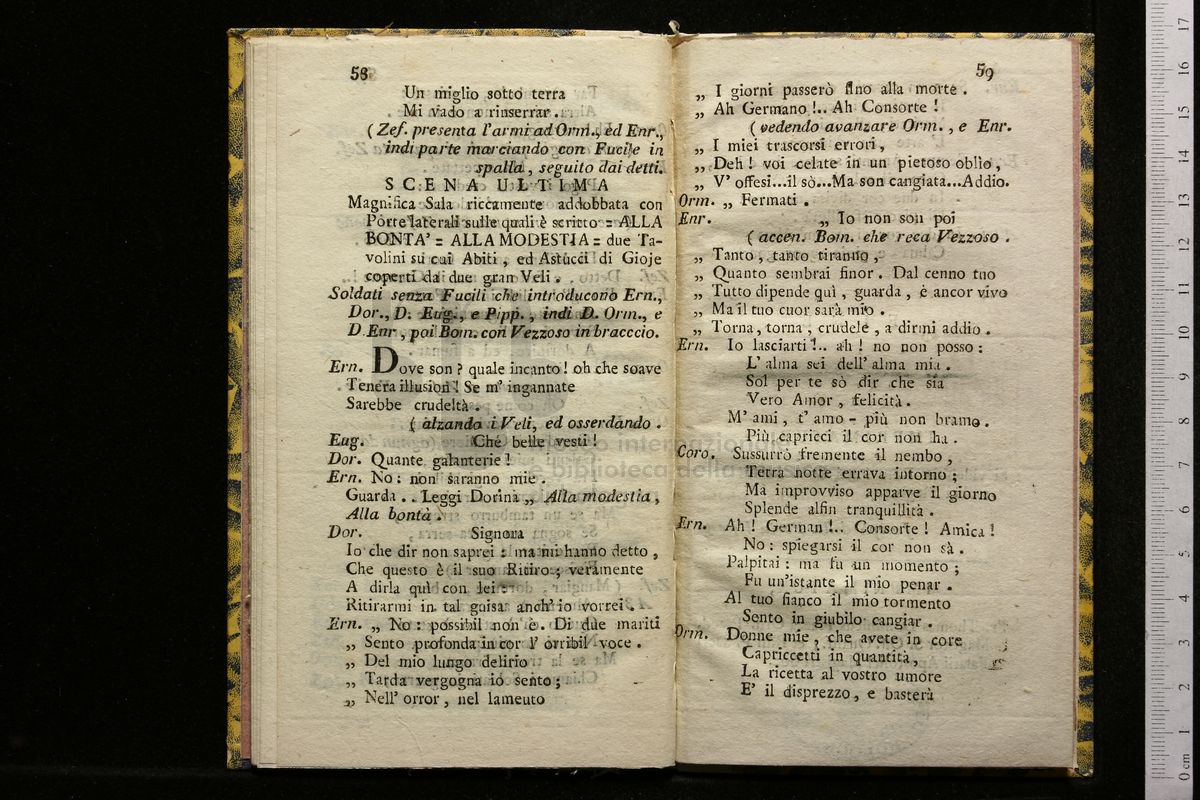 58
Un miglio sotto terra
Mi vado a rinserrar.
( Zef. presenta l'armi ad Orm., ed Enr.,
indi parte marciando con Fucile in
spalla, seguito dai detti.
SCENA ULTIMA
Magnifica Sala riccamente addobbata con
Porte laterali sulle quali è scritto = ALLA
BONTA' = ALLA MODESTIA = due Ta-
volini su cui Abiti, ed Astucci di Gioje
coperti da due gran Veli.
Soldati senza Fucili che introducono Ern.,
Dor., D. Eug., e Pipp., indi D. Orm., e
D. Enr., poi Bom. con Vezzoso in bracccio.
Ern. Dove son? quale incanto! oh che soave
Tenera illusion! Se m' ingannate
Sarebbe crudeltà.
( alzando i Veli, ed osserdando.
Eug. Ché belle vesti!
Dor. Quante galanterie!
Ern. No: non saranno mie.
Guarda.. Leggi Dorina „ Alla modestia,
Alla bontà.
Dor. Signora
Io che dir non saprei: ma mi hanno detto,
Che questo è il suo Ritiro; veramente
A dirla quì con lei
Ritirarmi in tal guisa anch' io vorrei.
Ern. „ No: possibil non è. Di due mariti
„ Sento profonda in cor l' orribil voce.
„ Del mio lungo delirio
„ Tarda vergogna io sento;
„ Nell' orror, nel lameuto
59
„ I giorni passerò fino alla morte.
„ Ah Germano!.. Ah Consorte!
( vedendo avanzare Orm., e Enr.
„ I miei trascorsi errori,
„ Deh! voi celate in un pietoso oblio,
„ V' offesi...il sò...Ma son cangiata...Addio.
Orm. „ Fermati.
Enr. „ Io non son poi
( accen. Bom. che reca Vezzoso.
„ Tanto, tanto tiranno,
„ Quanto sembrai finor. Dal cenno tuo
„ Tutto dipende quì, guarda, è ancor vivo
„ Ma il tuo cuor sarà mio.
„ Torna, torna, crudele, a dirmi addio.
Ern. Io lasciarti!.. ah! no non posso:
L' alma sei dell' alma mia.
Sol per te sò dir che sia
Vero Amor, felicità.
M' ami, t' amo - più non bramo.
Più capricci il cor non ha.
Coro. Sussurrò fremente il nembo,
Tetra notte errava intorno;
Ma improvviso apparve il giorno
Splende alfin tranquillità.
Ern. Ah! German!.. Consorte! Amica!
No: spiegarsi il cor non sà.
Palpitai: ma fu un momento;
Fu un'istante il mio penar.
Al tuo fianco il mio tormento
Sento in giubilo cangiar.
Orm. Donne mie, che avete in core
Capriccetti in quantità,
La ricetta al vostro umore
E' il disprezzo, e basterà
0 cm 1 2 3 4 5 6 7 8 9 10 11 12 13 14 15 16 17